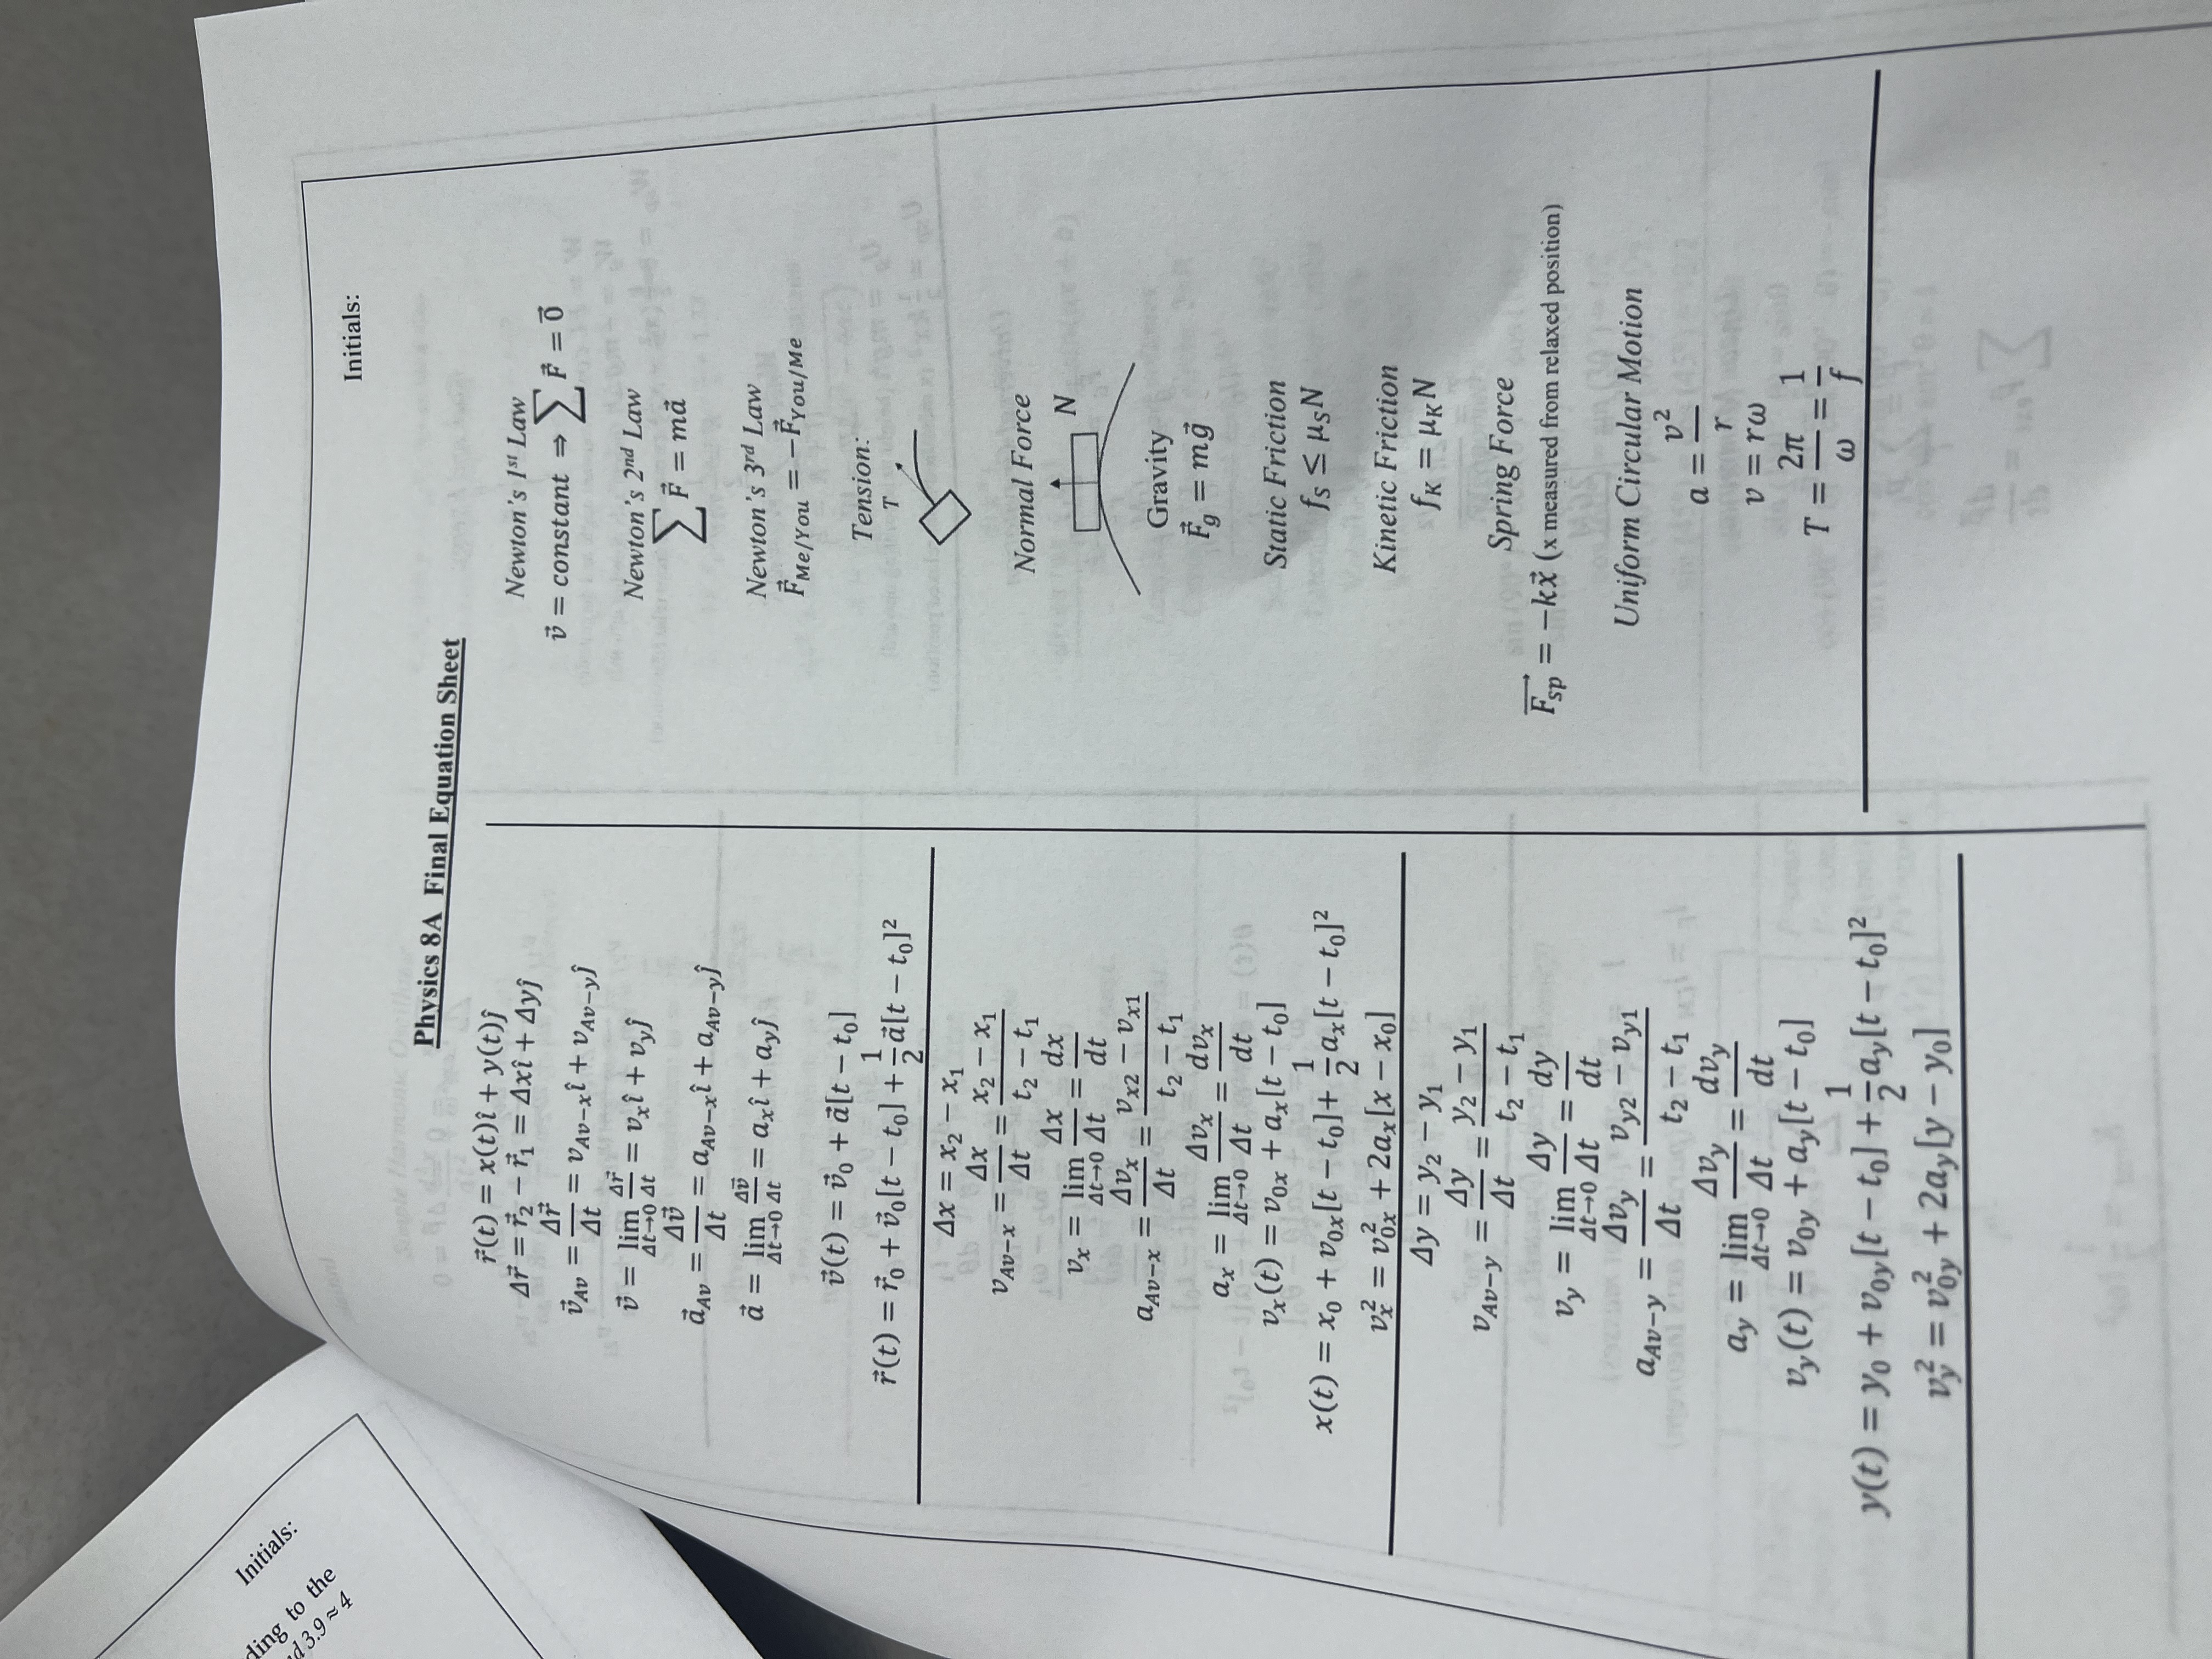 Initials:
Physics 8A Final Equation Sheet
r⃗(t) = x(t)î + y(t)ĵ
Δr⃗ = r⃗₂ − r⃗₁ = Δxî + Δyĵ
v⃗_Av = Δr⃗/Δt = v_Av−x î + v_Av−y ĵ
v⃗ = lim_{Δt→0} Δr⃗/Δt = v_x î + v_y ĵ
a⃗_Av = Δv⃗/Δt = a_Av−x î + a_Av−y ĵ
a⃗ = lim_{Δt→0} Δv⃗/Δt = a_x î + a_y ĵ
v⃗(t) = v⃗₀ + a⃗[t − t₀]
r⃗(t) = r⃗₀ + v⃗₀[t − t₀] + 1/2 a⃗[t − t₀]²
Δx = x₂ − x₁
v_Av−x = Δx/Δt = (x₂ − x₁)/(t₂ − t₁)
v_x = lim_{Δt→0} Δx/Δt = dx/dt
a_Av−x = Δv_x/Δt = (v_x2 − v_x1)/(t₂ − t₁)
a_x = lim_{Δt→0} Δv_x/Δt = dv_x/dt
v_x(t) = v_0x + a_x[t − t₀]
x(t) = x₀ + v_0x[t − t₀] + 1/2 a_x[t − t₀]²
v_x² = v_0x² + 2a_x[x − x₀]
Δy = y₂ − y₁
v_Av−y = Δy/Δt = (y₂ − y₁)/(t₂ − t₁)
v_y = lim_{Δt→0} Δy/Δt = dy/dt
a_Av−y = Δv_y/Δt = (v_y2 − v_y1)/(t₂ − t₁)
a_y = lim_{Δt→0} Δv_y/Δt = dv_y/dt
v_y(t) = v_0y + a_y[t − t₀]
y(t) = y₀ + v_0y[t − t₀] + 1/2 a_y[t − t₀]²
v_y² = v_0y² + 2a_y[y − y₀]
Newton's 1st Law
v⃗ = constant ⇒ ∑ F⃗ = 0⃗
Newton's 2nd Law
∑ F⃗ = ma⃗
Newton's 3rd Law
F⃗_Me/You = −F⃗_You/Me
Tension:
T
Normal Force
N
Gravity
F⃗_g = mg⃗
Static Friction
f_S ≤ μ_S N
Kinetic Friction
f_K = μ_K N
Spring Force
F⃗_sp = −kx⃗ (x measured from relaxed position)
Uniform Circular Motion
a = v²/r
v = rω
T = 2π/ω = 1/f
Initials:
ding to the
d 3.9 ≈ 4